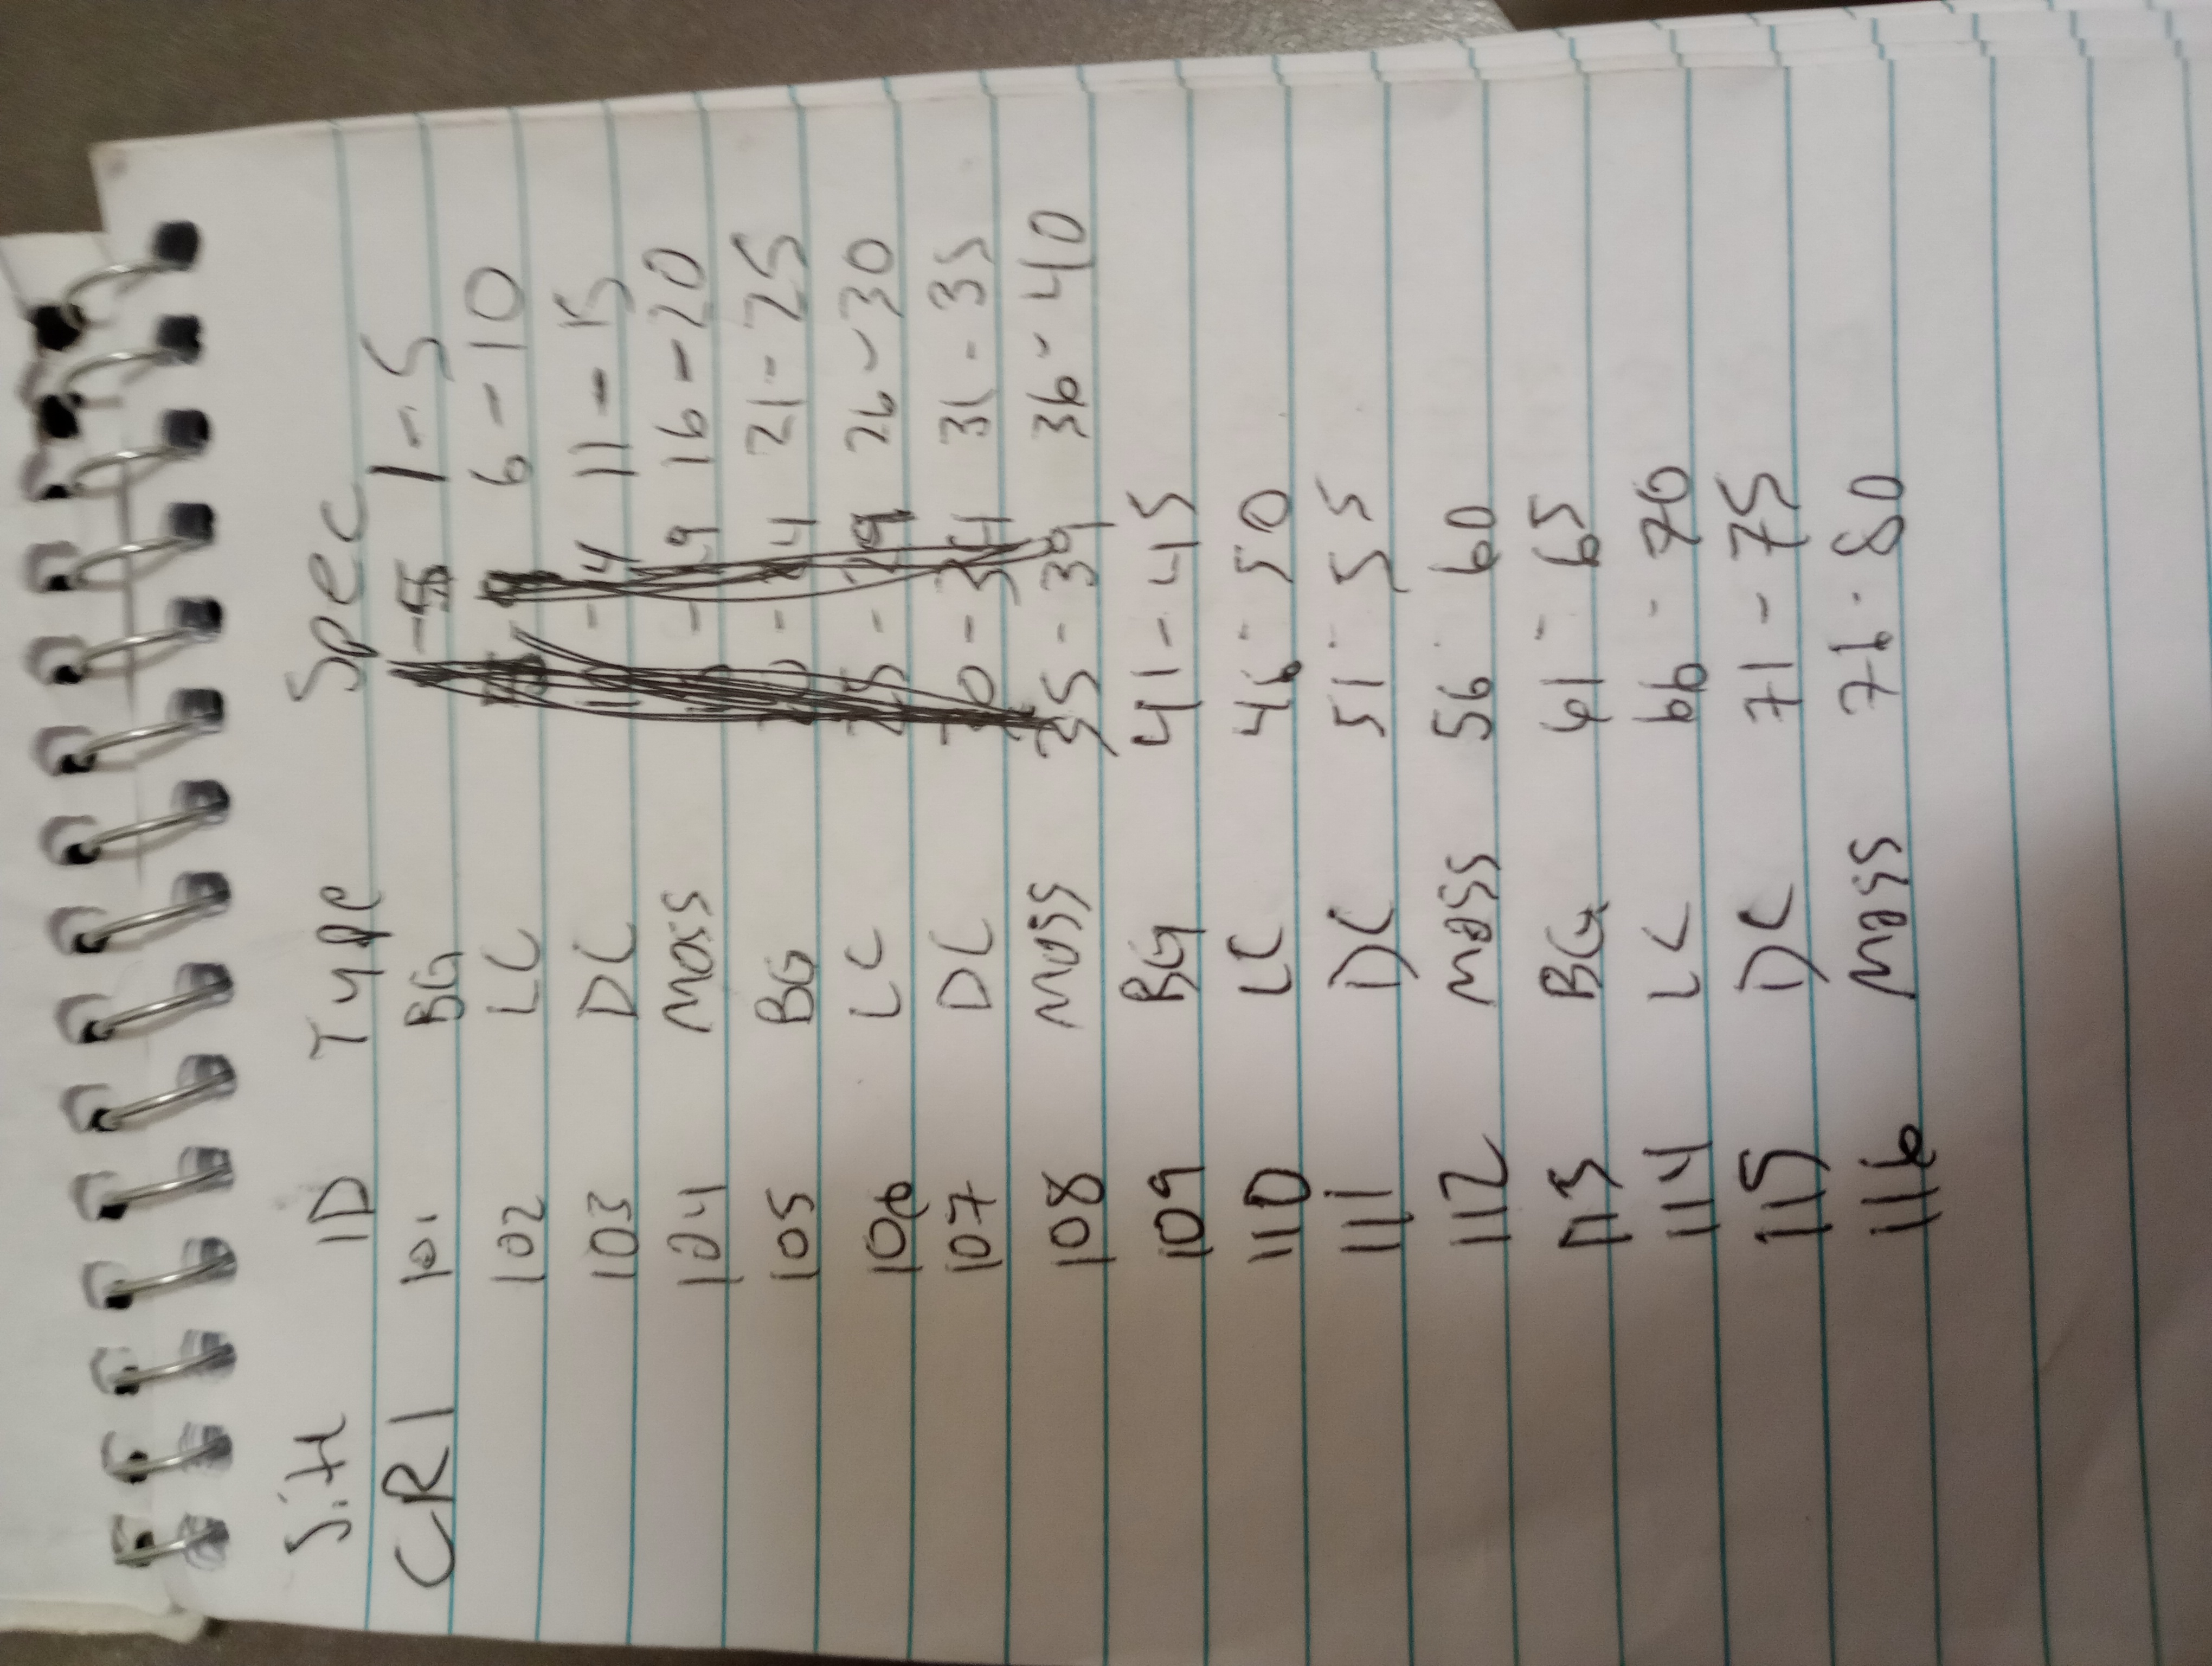 Site ID Type Spec
CR1 101 BG 1-5
102 LC 6-10
103 DC 11-15
104 Moss 16-20
105 BG 21-25
106 LC 26-30
107 DC 30-34 31-35
108 Moss 35-39 36-40
109 BG 41-45
110 LC 46-50
111 DC 51-55
112 Moss 56-60
113 BG 61-65
114 LC 66-70
115 DC 71-75
116 Moss 76-80